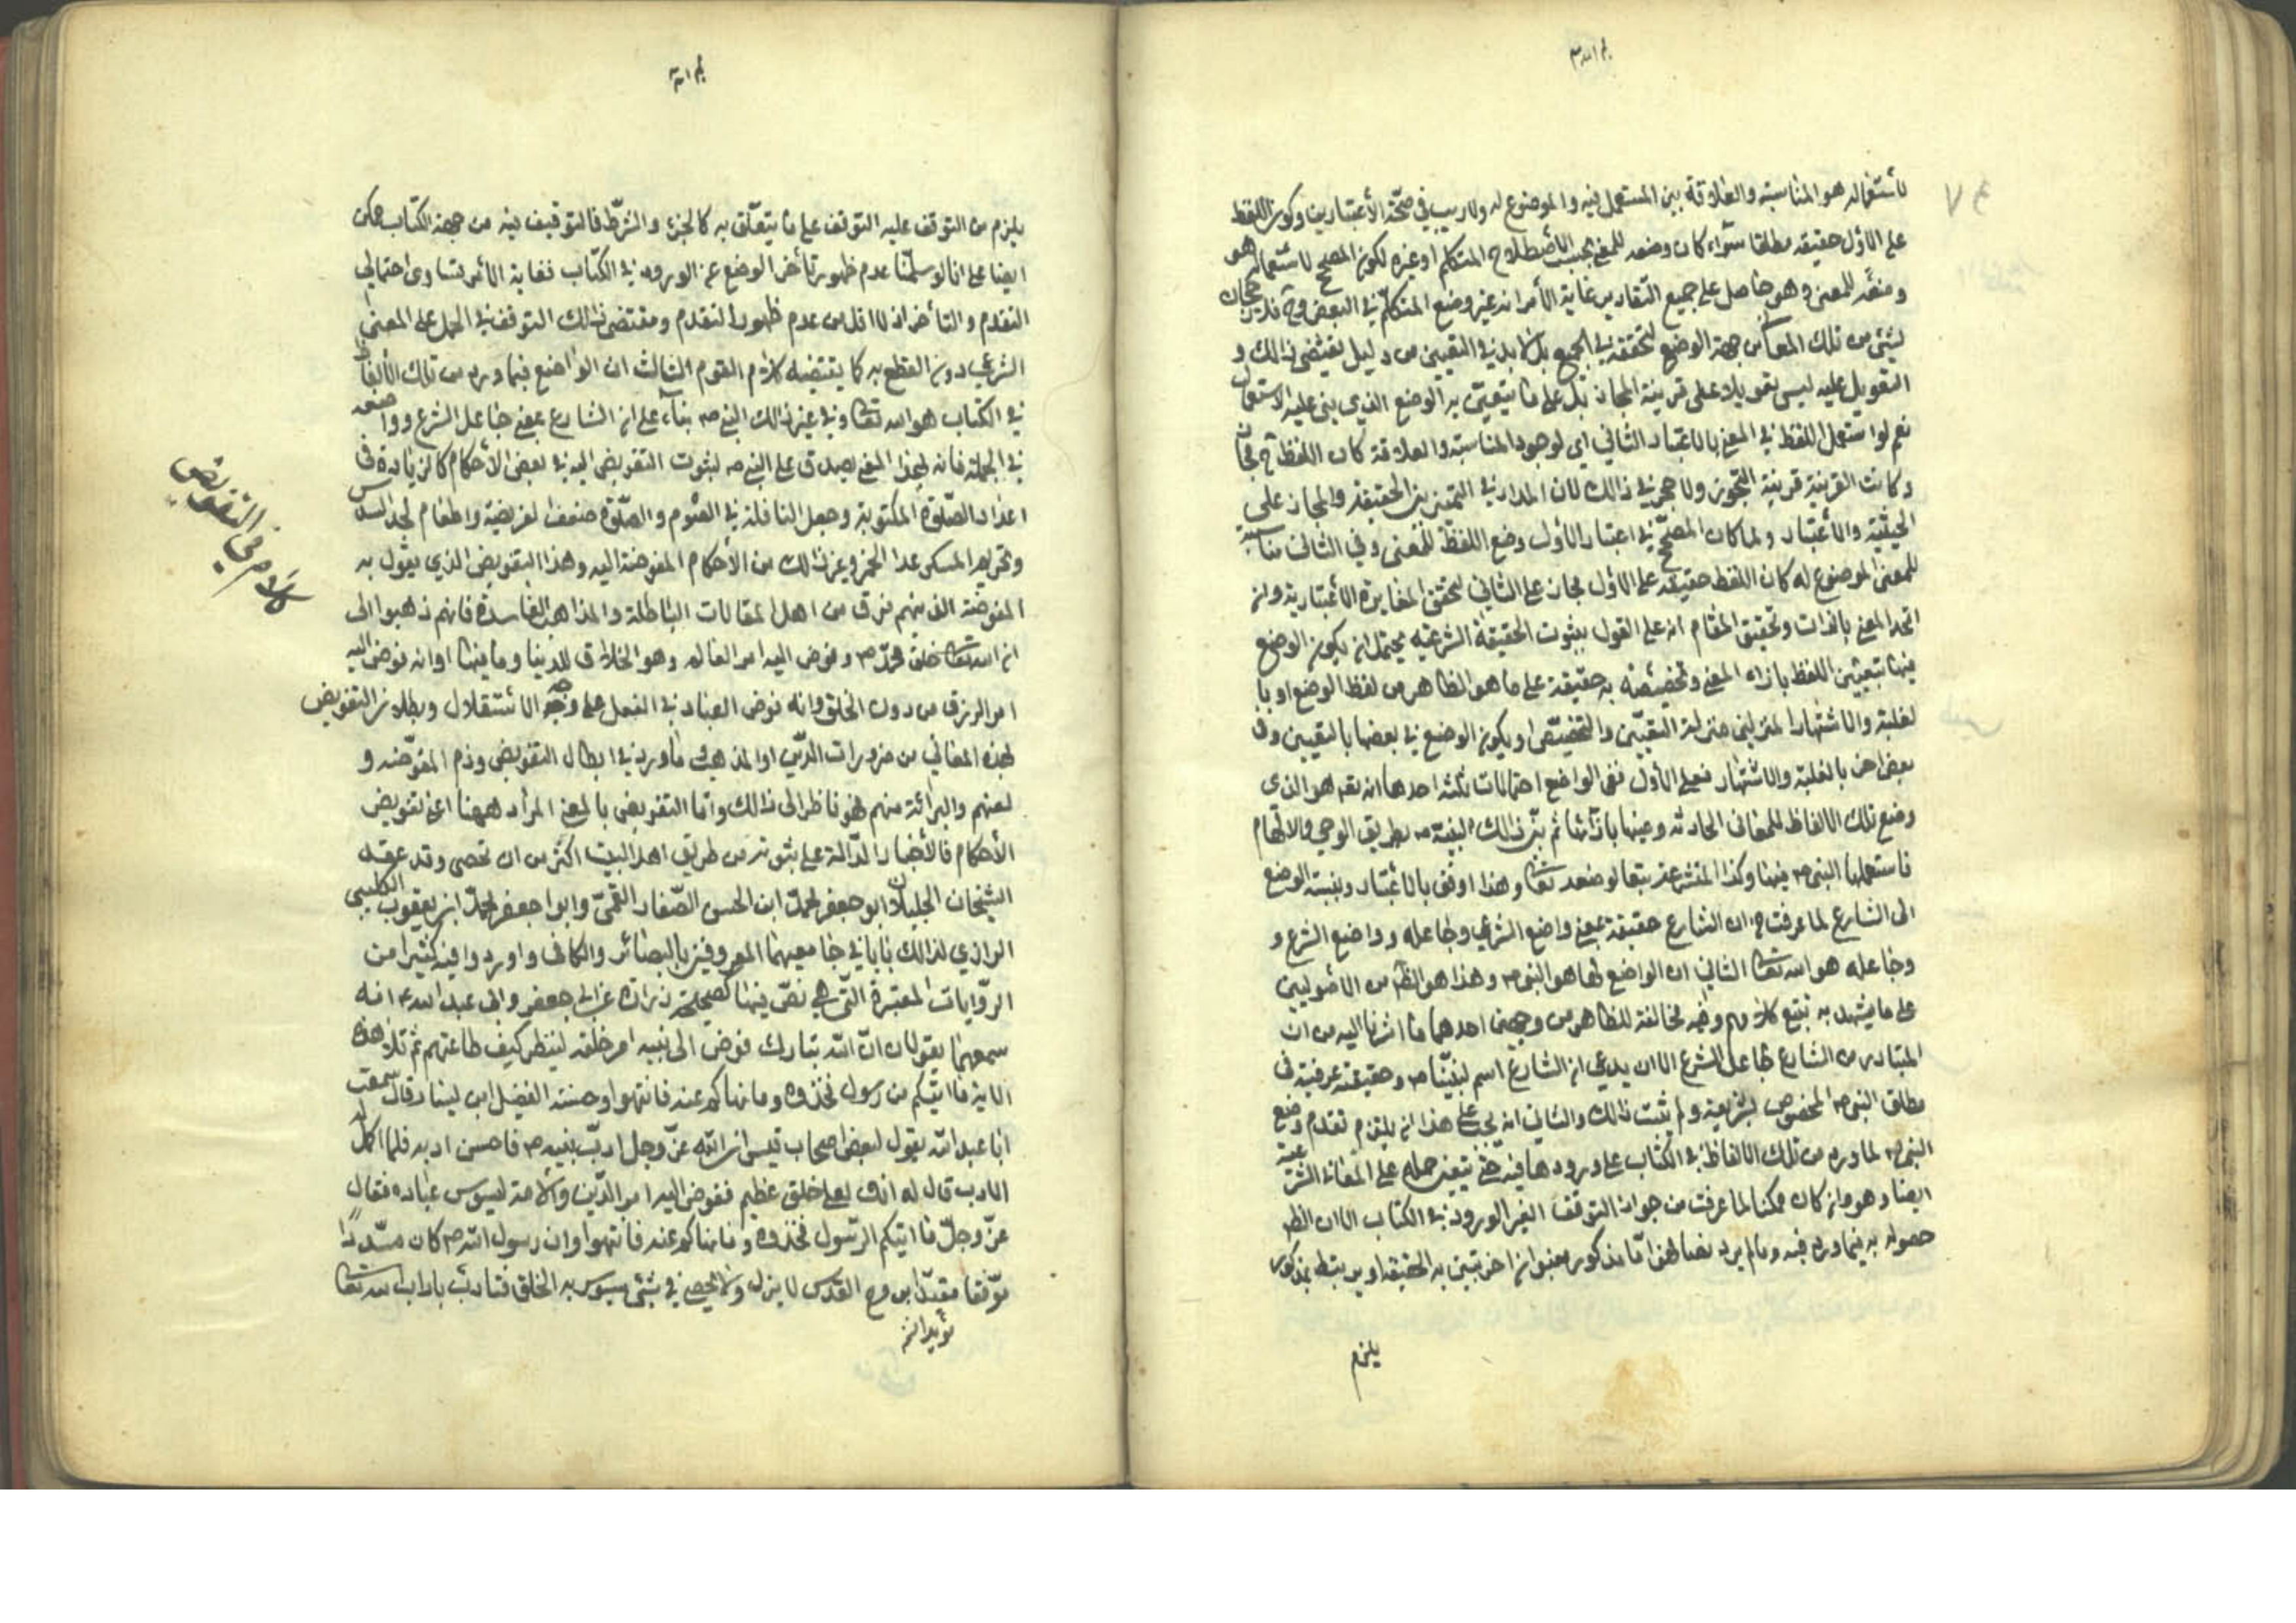 لأستعماله هو المناسبة والعلاقة بين المستعمل فيه والموضوع له ولا ريب في صحّة الأعتبارين وكون اللفظ
على الاوّل حقيقة مطلقا سوآء كان وضعه للمعنى بحسب اصطلاح المتكلم او غيره لكون المصحح لاستعماله هو
وضعه للمعنى وهو حاصل على جميع التقادير غاية الأمر انه غير وضع المتكلّم في البعض وح فلا رجحان
لشئ من تلك المعانى من جهة الوضع لتحققه في الجميع بل لا بد في التعيين من دليل يقتضى ذالك و
التعويل عليه ليس تعويلا على قرينة المجاز بل على ما يتعيّن به الوضع الذي بنى عليه الاستعمال
نعم لو استعمل اللفظ في المعنى بالاعتبار الثاني اي لوجود المناسبة والعلاقة كان اللفظ ح مجازا
وكانت القرينة قرينة التجوز ولا حجر في ذالك لان المدار في التميز بين الحقيقة والمجاز على
الحيثية والأعتبار ولما كان المصحّح في اعتبار الأول وضع اللفظ للمعنى وفي الثانى مناسبة
للمعنى الموضوع له كان اللفظ حقيقة على الاوّل مجاز على الثاني لتحقق المغايرة الأعتبارية وان
اتحد المعنى بالذات وتحقيق المقام انه على القول بثبوت الحقيقة الشرعيّه يحتمل ان يكون الوضع
فيها بتعيين اللفظ بازاء المعنى وتخصيصه به حقيقة على ما هو الظاهر من لفظ الوضع او با
لغلبة والاشتهار المنزلين منزلة التعيّين والتخصّص او يكون الوضع في بعضها بالتعيين وفى
بعض اخر بالغلبة والاشتهار فعلى الأول ففى الواضع احتمالات ثلثه احدها انه تعه هو الذى
وضع تلك الالفاظ للمعانى الحادثه وعينها بازائها ثم بيّن ذالك لنبيّه ص بطريق الوحي والالهام
فاستعملها النبى ص فيها وكذا المتشرعة تبعا لوضعه تعالى وهذا اوفق بالاعتبار ونسبة الوضع
الى الشارع لما عرفت من ان الشارع حقيقة بمعنى واضع الشرع وجاعله وواضع الشرع و
وجاعله هو الله تعالى الثاني ان الواضع لها هو النبى ص وهذا هو الظ من الاصوليين
على ما يشهد به تتبع كلامهم وفيه مخالفة للظاهر من وجهين احدهما ما اشرنا اليه من ان
المتبادر من الشارع جاعل الشرع الا ان يدعي ان الشارع اسم لنبيّنا ص وحقيقة عرفية فى
مطلق النبى ص المخصوص بشريعة ولم يثبت ذالك والثاني انه يجب على هذا ان يلتزم تقدم وضع
النبى ص لما ورد من تلك الالفاظ في الكتاب على ورودها فيه حتى يتعين حمله على المعانى الشرعية
ايضا وهو وان كان ممكنا لما عرفت من جواز التوقف الغير الورود في الكتاب الا ان الظ
حصوله به فيما ورد فيه وما لم يرد
يلزم
يلزم من التوقف عليه التوقف على ما يتعلّق به كالجزء والشرّط فالتوقيف فيه من جهة الكتاب ممكن
ايضا على انا لو سلّمنا عدم ظهور تأخر الوضع عن الورود في الكتاب فغاية الأمر تساوى احتمالي
التقدم والتاخر اذ لا اقل من عدم ظهور التقدم ومقتضى ذالك التوقف في الحمل على المعنى
الشرعي دون القطع به كما يقتضيه كلام القوم الثالث ان الواضع فيما ورد من تلك الألفاظ
في الكتاب هو الله تعالى وفي غير ذالك النبى ص بناء على ان الشارع بمعنى جاعل الشرع وواضعه
في الجملة فانه لهذا المعنى يصدق على النبى ص لثبوت التفويض اليه في بعض الأحكام كالزيادة فى
اعداد الصّلوة المكتوبة وجعل النافلة في الصّوم والصّلوة ضعف الفريضة واطعام الجد السدس
وتحريم المسكر عدا الخمر وغير ذالك من الأحكام المفوضة اليه وهذا التفويض الذي يقول به
المفوضة الذ منهم فرق من اهل المقالات الباطلة والمذاهب الفاسدة فانهم ذهبوا الى
ان الله تعالى خلق محمّد ص وفوض اليه امر العالم وهو الخلاق للدينا وما فيها او انه فوض اليه
امر الرزق من دون الخلق وانه فوض العباد في الفعل على وجه الاستقلال وبطلان التفويض
لهذه المعاني من ضرورات الدّين او المذهب وما ورد في ابطال التفويض وذم المفوّضه و
لعنهم والبرائة منهم فهو ناظر الى ذالك وامّا التفويض بالمعنى المراد ههنا اعنى تفويض
الأحكام فالأخبار الدّالة على ثبوته من طريق اهل البيت اكثر من ان تحصى وقد عقد
الشيخان الجليلان ابو جعفر محمّد ابن الحسن الصّفار القمّي وابوا جعفر محمّد ابن يعقوب الكلينى
الرازي لذالك بابا في جامعيهما المعروفين بالبصائر والكافى واوردوا فيه كثيرا من
الرّوايات المعتبرة التّي هي نصّ فيها كصحيحة زرارة عن ابى جعفر وابى عبد الله ع انه
سمعهما يقولان انّ اللّه تبارك فوض الى نبيه امر خلقه لينظر كيف طاعتهم ثم تلا هذه
الاية ما اتيكم من رسول فخذوه وما نهاكم عنه فانتهوا وحسنة الفضيل ابن ليسار قال سمعت
ابا عبد اللّه يقول لبعض اصحاب قيس ان اللّه عزّ وجل ادّب نبيه ص فاحسن ادبه فلما اكمل له
الادب قال له انك لعلى خلق عظيم ففوض اليه امر الدّين والامة ليسوس عباده فقال
عزّ وجلّ ما اتيكم الرّسول فخذوه وما نهاكم عنه فانتهوا وان رسول اللّه ص كان مسّددًا
موّفقا مؤيّدا بروح القدس لا يزل ولا يخطئ في شئ يسوس به الخلق فتادب باداب الله تعالى
كلام في التفويض